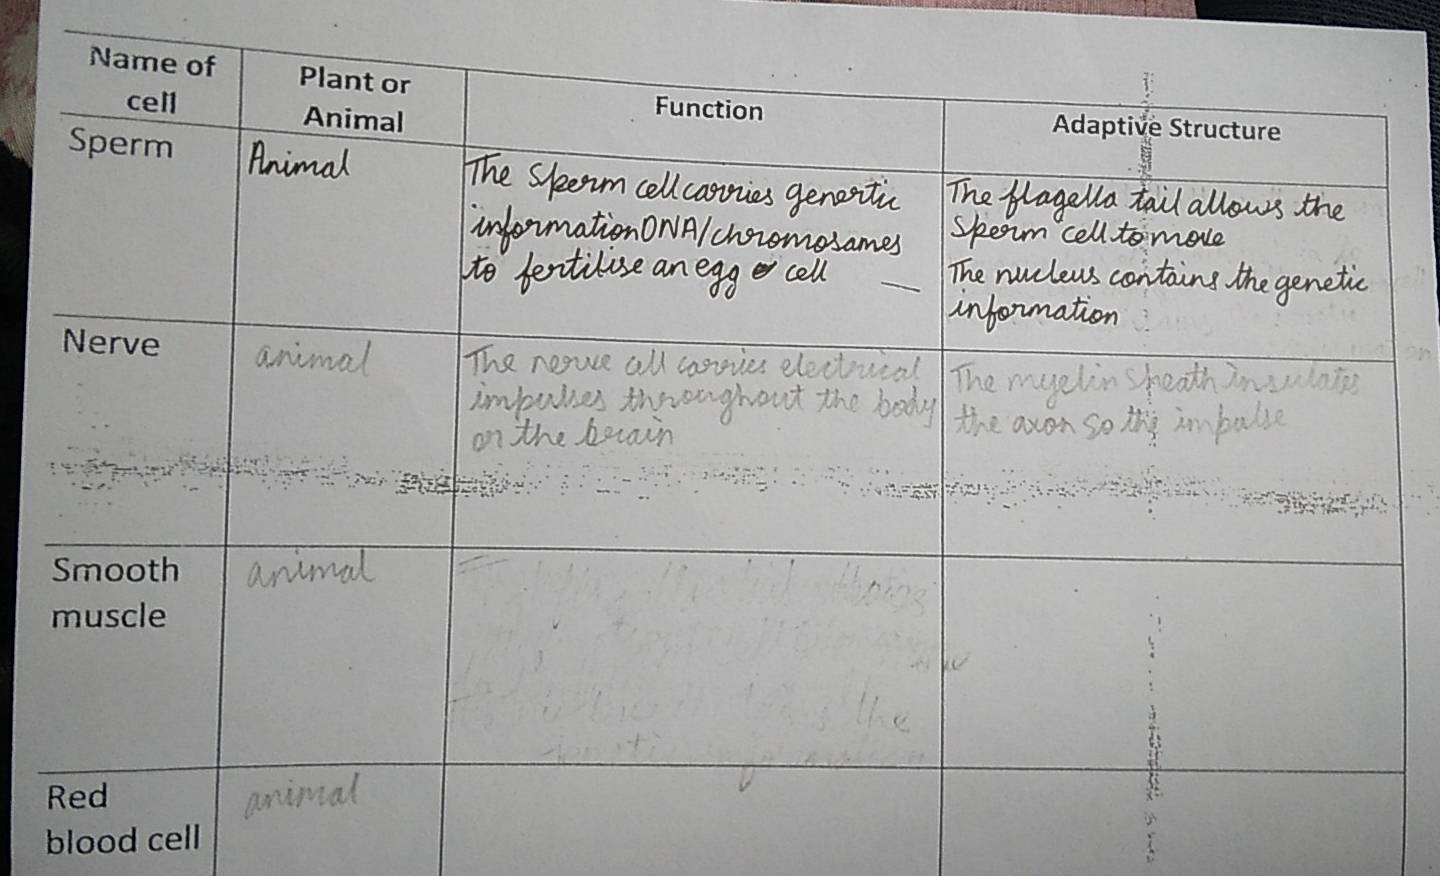 Name of
cell
Plant or
Animal
Function
Adaptive Structure
Sperm
Animal
The Sperm cell carries genertic
information DNA/chromosames
to fertilise an egg cell
The flagella tail allows the
Sperm cell to move
The nucleus contains the genetic
information
Nerve
animal
The nerve cell carries electrical
impulses throughout the body
or the brain
The myelin sheath insulates
the axon so the impulse
Smooth
muscle
animal
the
Red
blood cell
animal